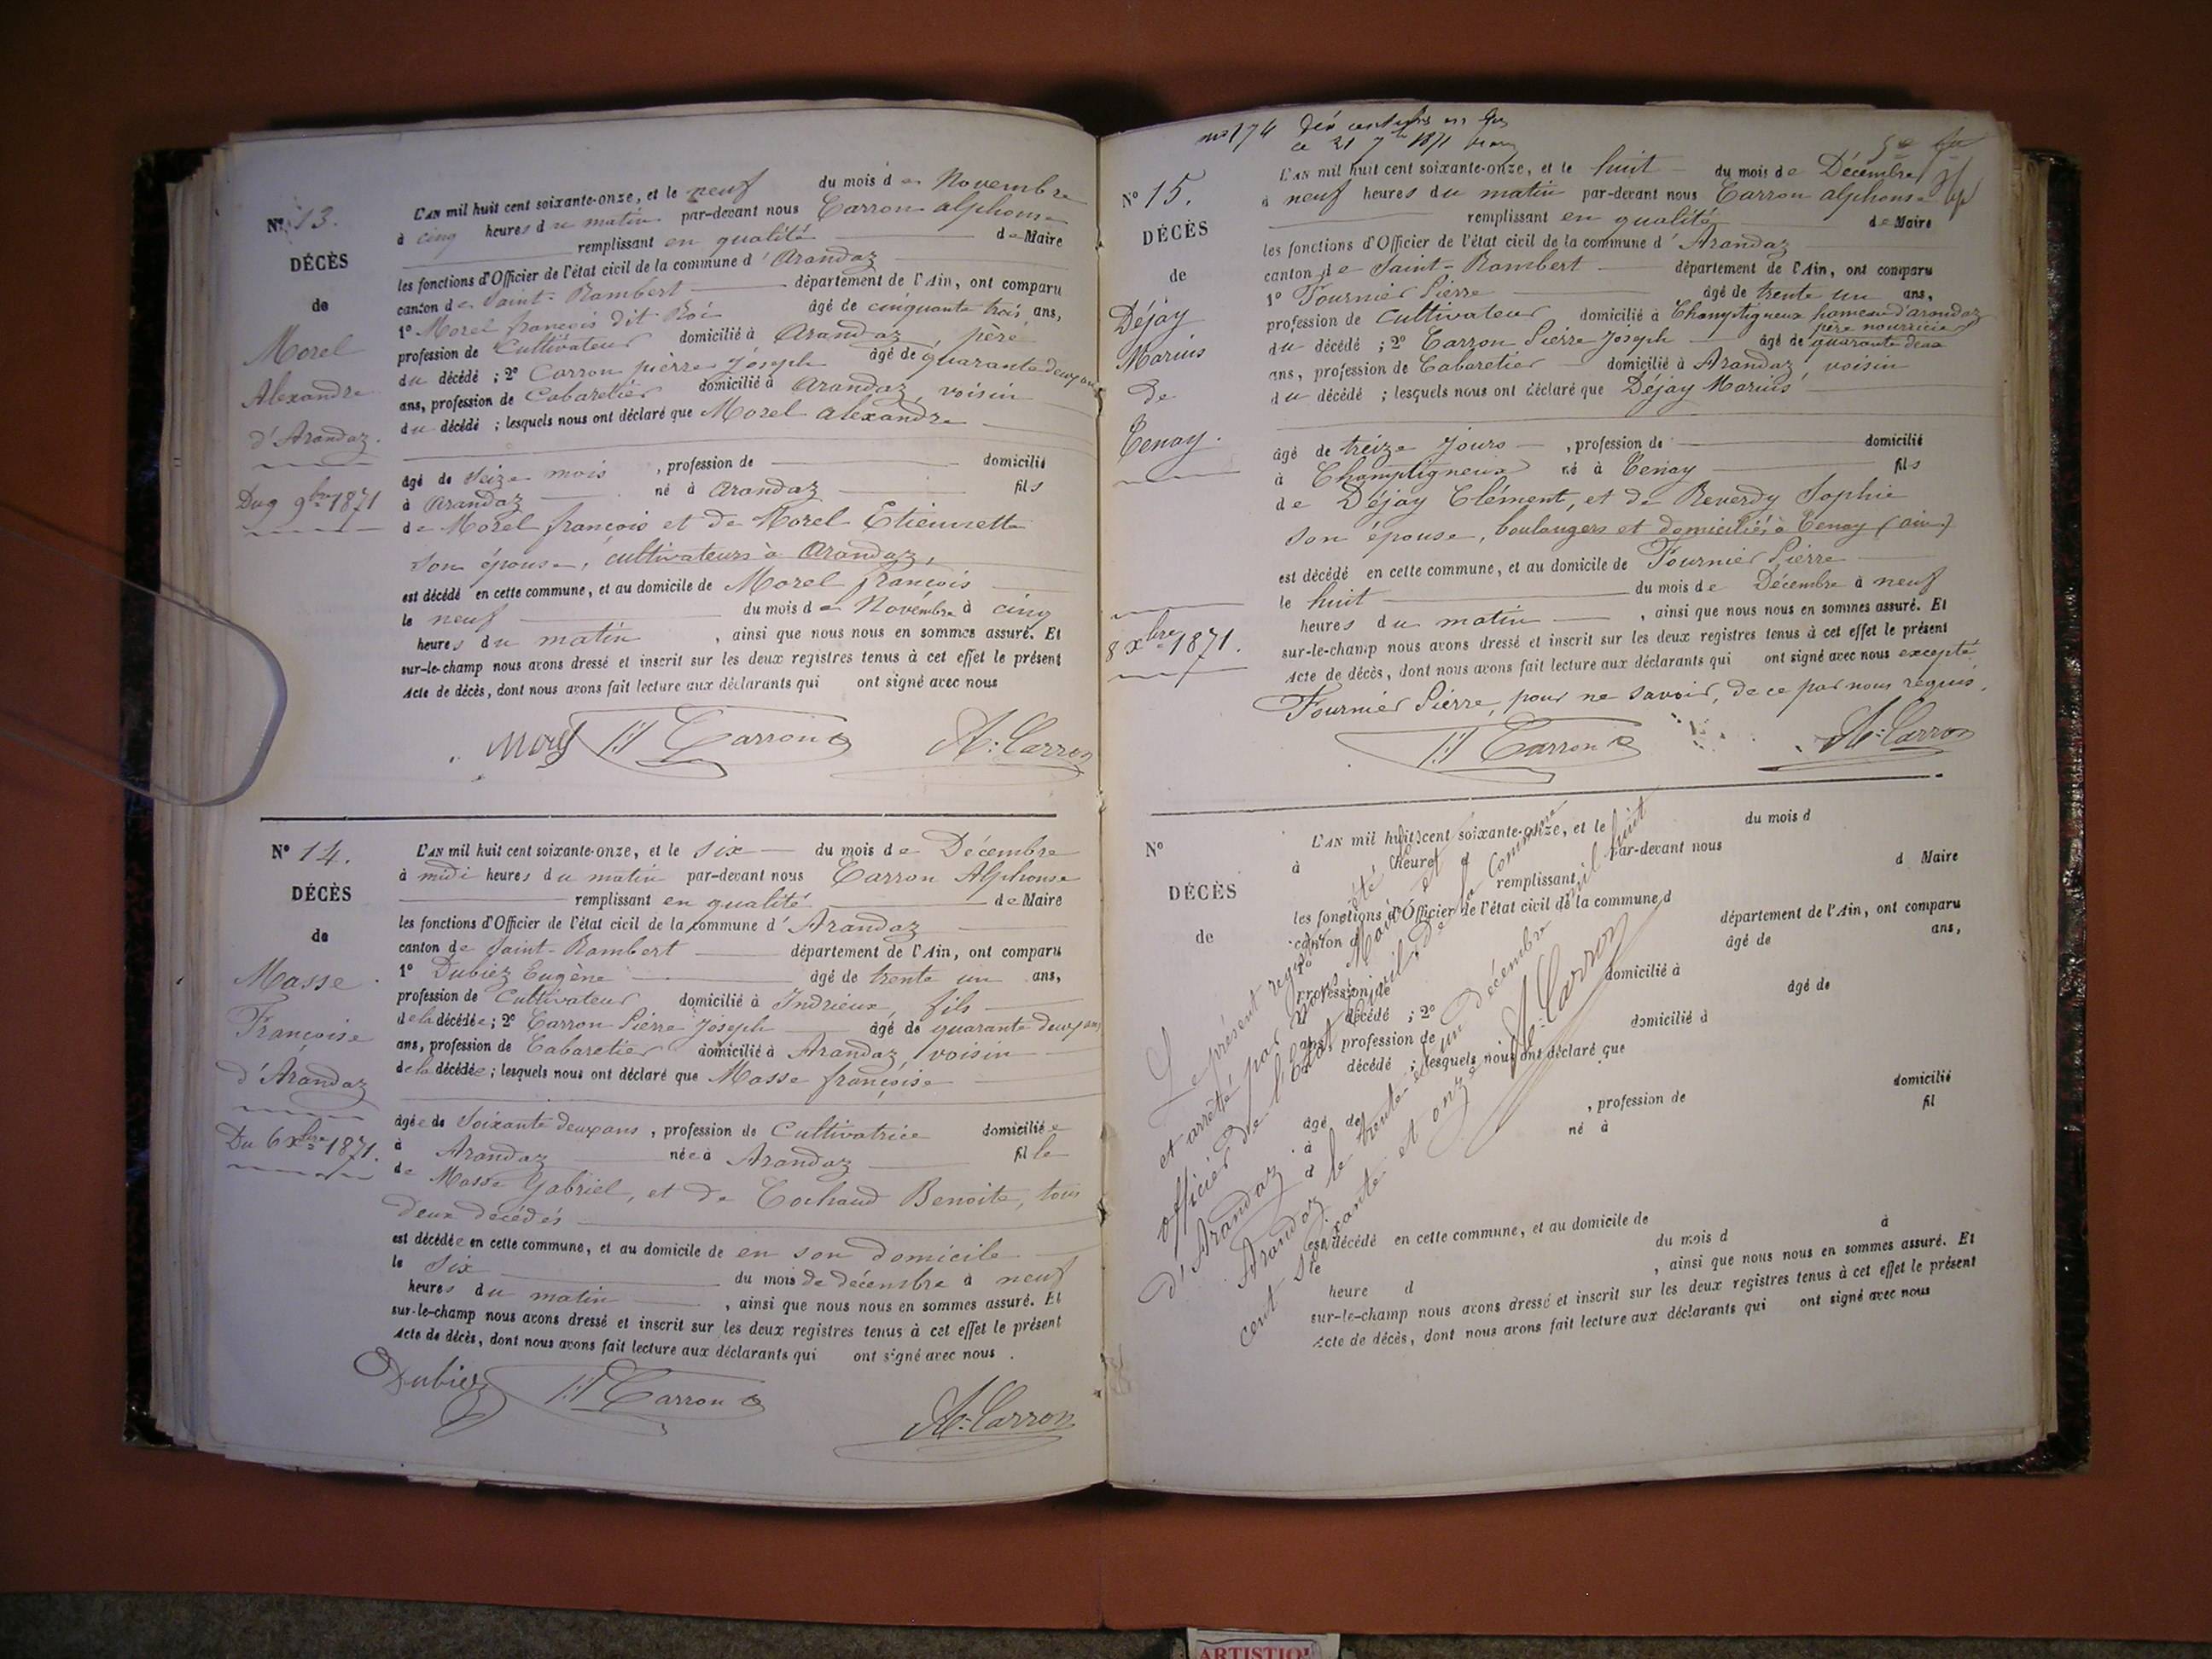 N° 13.
DÉCÈS
de
Morel
Alexandre
d'Arandaz.
Du 9 9bre 1871
L'AN mil huit cent soixante-onze, et le neuf du mois de Novembre
à cinq heures du matin par-devant nous Carron alphonse
remplissant en qualité de Maire
les fonctions d'Officier de l'état civil de la commune d'Arandaz
canton de Saint-Rambert département de l'Ain, ont comparu
1° Morel françois dit Roi âgé de cinquante trois ans,
profession de Cultivateur domicilié à Arandaz, père
du décédé ; 2° Carron pierre Joseph âgé de quarante deux ans
ans, profession de Cabaretier domicilié à Arandaz, voisin
du décédé ; lesquels nous ont déclaré que Morel alexandre
âgé de Seize mois , profession de domicilié
à Arandaz né à Arandaz fils
de Morel françois et de Morel Etiennette
son épouse, cultivateurs à Arandaz,
est décédé en cette commune, et au domicile de Morel françois
le neuf du mois de Novembre à cinq
heures du matin , ainsi que nous nous en sommes assuré. Et
sur-le-champ nous avons dressé et inscrit sur les deux registres tenus à cet effet le présent
Acte de décès, dont nous avons fait lecture aux déclarants qui ont signé avec nous
Morel Carron A. Carron
N° 14.
DÉCÈS
de
Masse
Françoise
d'Arandaz
Du 6 Xbre 1871.
L'AN mil huit cent soixante-onze, et le six du mois de Décembre
à midi heures du matin par-devant nous Carron Alphonse
remplissant en qualité de Maire
les fonctions d'Officier de l'état civil de la commune d'Arandaz
canton de Saint-Rambert département de l'Ain, ont comparu
1° Dubiez Eugène âgé de trente un ans,
profession de Cultivateur domicilié à Indrieux, fils
de la décédée ; 2° Carron Pierre Joseph âgé de quarante deux ans
ans, profession de Cabaretier domicilié à Arandaz, voisin
de la décédée ; lesquels nous ont déclaré que Masse françoise
âgée de Soixante deux ans , profession de Cultivatrice domiciliée
à Arandaz née à Arandaz fille
de Masse Gabriel, et de Cochaud Benoite, tous
deux décédés
est décédée en cette commune, et au domicile de en son domicile
le six du mois de décembre à neuf
heures du matin , ainsi que nous nous en sommes assuré. Et
sur-le-champ nous avons dressé et inscrit sur les deux registres tenus à cet effet le présent
Acte de décès, dont nous avons fait lecture aux déclarants qui ont signé avec nous .
Dubiez Carron A. Carron
n° 174
N° 15.
DÉCÈS
de
Déjay
Marius
de
Tenay.
8 Xbre 1871.
L'AN mil huit cent soixante-onze, et le huit du mois de Décembre
à neuf heures du matin par-devant nous Carron alphonse
remplissant en qualité de Maire
les fonctions d'Officier de l'état civil de la commune d'Arandaz
canton de Saint-Rambert département de l'Ain, ont comparu
1° Fournier Pierre âgé de trente un ans,
profession de Cultivateur domicilié à Champtigneux hameau d'arandaz
père nourricier
du décédé ; 2° Carron Pierre Joseph âgé de quarante deux
ans, profession de Cabaretier domicilié à Arandaz, voisin
du décédé ; lesquels nous ont déclaré que Déjay Marius
âgé de treize jours , profession de domicilié
à Champtigneux né à Tenay fils
de Déjay Clément, et de Reverdy Sophie
son épouse, boulangers et domiciliés à Tenay (ain)
est décédé en cette commune, et au domicile de Fournier Pierre
le huit du mois de Décembre à neuf
heures du matin , ainsi que nous nous en sommes assuré. Et
sur-le-champ nous avons dressé et inscrit sur les deux registres tenus à cet effet le présent
Acte de décès, dont nous avons fait lecture aux déclarants qui ont signé avec nous excepté
Fournier Pierre, pour ne savoir, de ce par nous requis.
Carron A. Carron
N°
DÉCÈS
de
L'AN mil huit cent soixante-onze, et le du mois d
à heure d par-devant nous
remplissant d Maire
les fonctions d'Officier de l'état civil de la commune d
canton d département de l'Ain, ont comparu
1° âgé de ans,
profession de domicilié à
décédé ; 2° âgé de
ans, profession de domicilié à
décédé ; lesquels nous ont déclaré que
âgé de , profession de domicilié
à né à fil
d
est décédé en cette commune, et au domicile de
du mois d à
heure d , ainsi que nous nous en sommes assuré. Et
sur-le-champ nous avons dressé et inscrit sur les deux registres tenus à cet effet le présent
Acte de décès, dont nous avons fait lecture aux déclarants qui ont signé avec nous
Le présent registre a été clos
et arrêté par nous Maire et
officier de l'état civil de la commune
d'Arandaz.
Arandaz le trente et un décembre mil huit
cent soixante et onze
A. Carron
ARTISTIQ